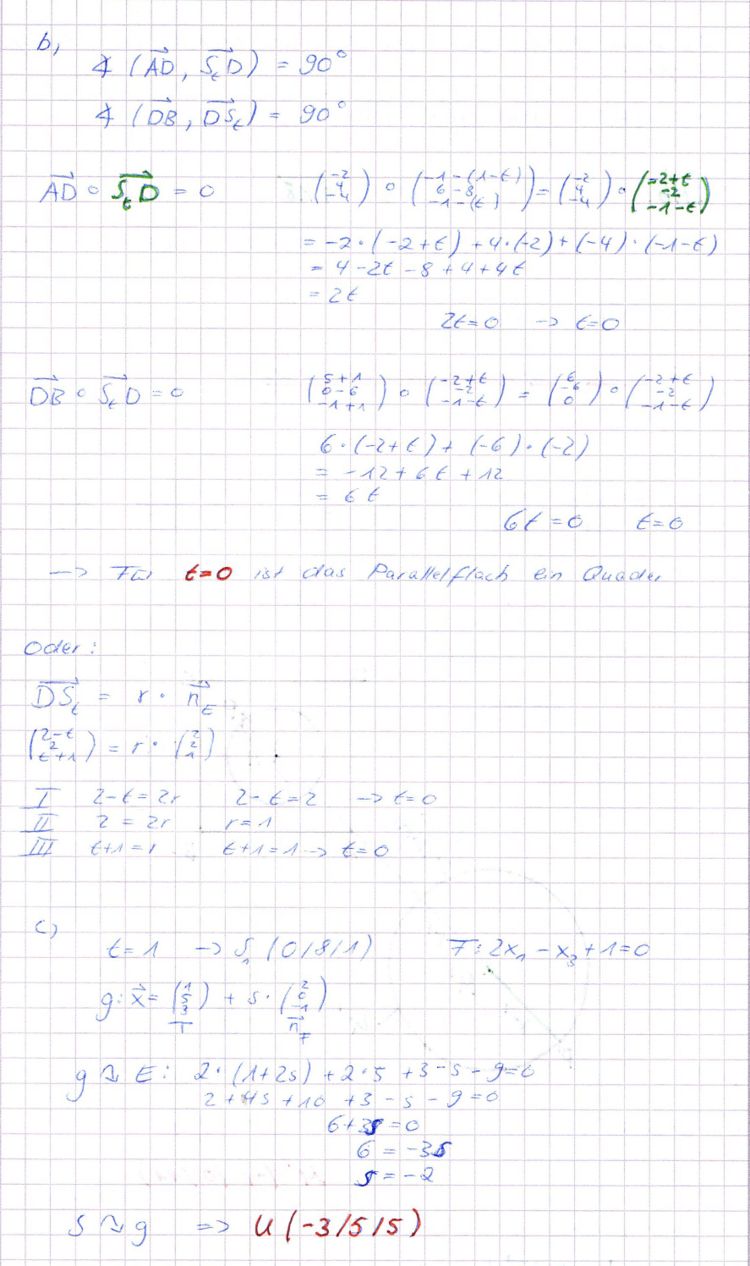 b,
∢ (A͞D⃗, S_tD⃗) = 90°
∢ (DB⃗, DS_t⃗) = 90°
AD⃗ ∘ S_tD⃗ = 0 (-2 4 -4) ∘ (-1-(1-t) 6-8 -1-(t)) = (-2 4 -4) ∘ (-2+t -2 -1-t)
= -2·(-2+t) + 4·(-2) + (-4)·(-1-t)
= 4 - 2t - 8 + 4 + 4t
= 2t
2t=0 → t=0
DB⃗ ∘ S_tD⃗ = 0 (5+1 0-6 -1+1) ∘ (-2+t -2 -1-t) = (6 -6 0) ∘ (-2+t -2 -1-t)
6·(-2+t) + (-6)·(-2)
= -12 + 6t + 12
= 6t
6t = 0 t=0
→ Für t=0 ist das Parallelflach ein Quader
Oder:
DS_t⃗ = r · n_E⃗
(2-t 2 t+1) = r · (2 2 1)
I 2-t=2r 2-t=2 → t=0
II 2=2r r=1
III t+1=r t+1=1 → t=0
c,
t=1 → S_1 (0/8/1) F: 2x_1 - x_3 + 1 = 0
g: x⃗ = (1 5 3) + s · (2 0 -1)
T n_F⃗
g ↷ E: 2·(1+2s) + 2·5 + 3-s - 9=0
2+4s + 10 + 3 - s - 9=0
6+3s=0
6 = -3s
s = -2
s ↷ g ⇒ U (-3/5/5)